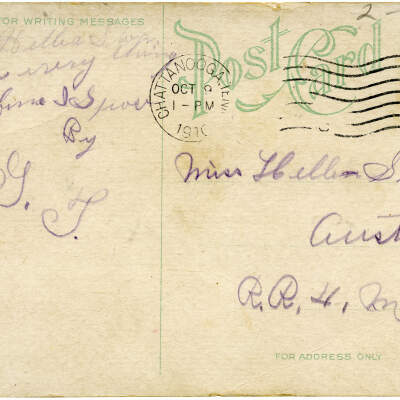 FOR WRITING MESSAGES
Hellen
every thing
fine I
By
G. T.
Post Card
CHATTANOOGA, TENN.
OCT 8
1-PM
1910
2-
Miss Hellen S
Aust
R.R. 4, M
FOR ADDRESS ONLY